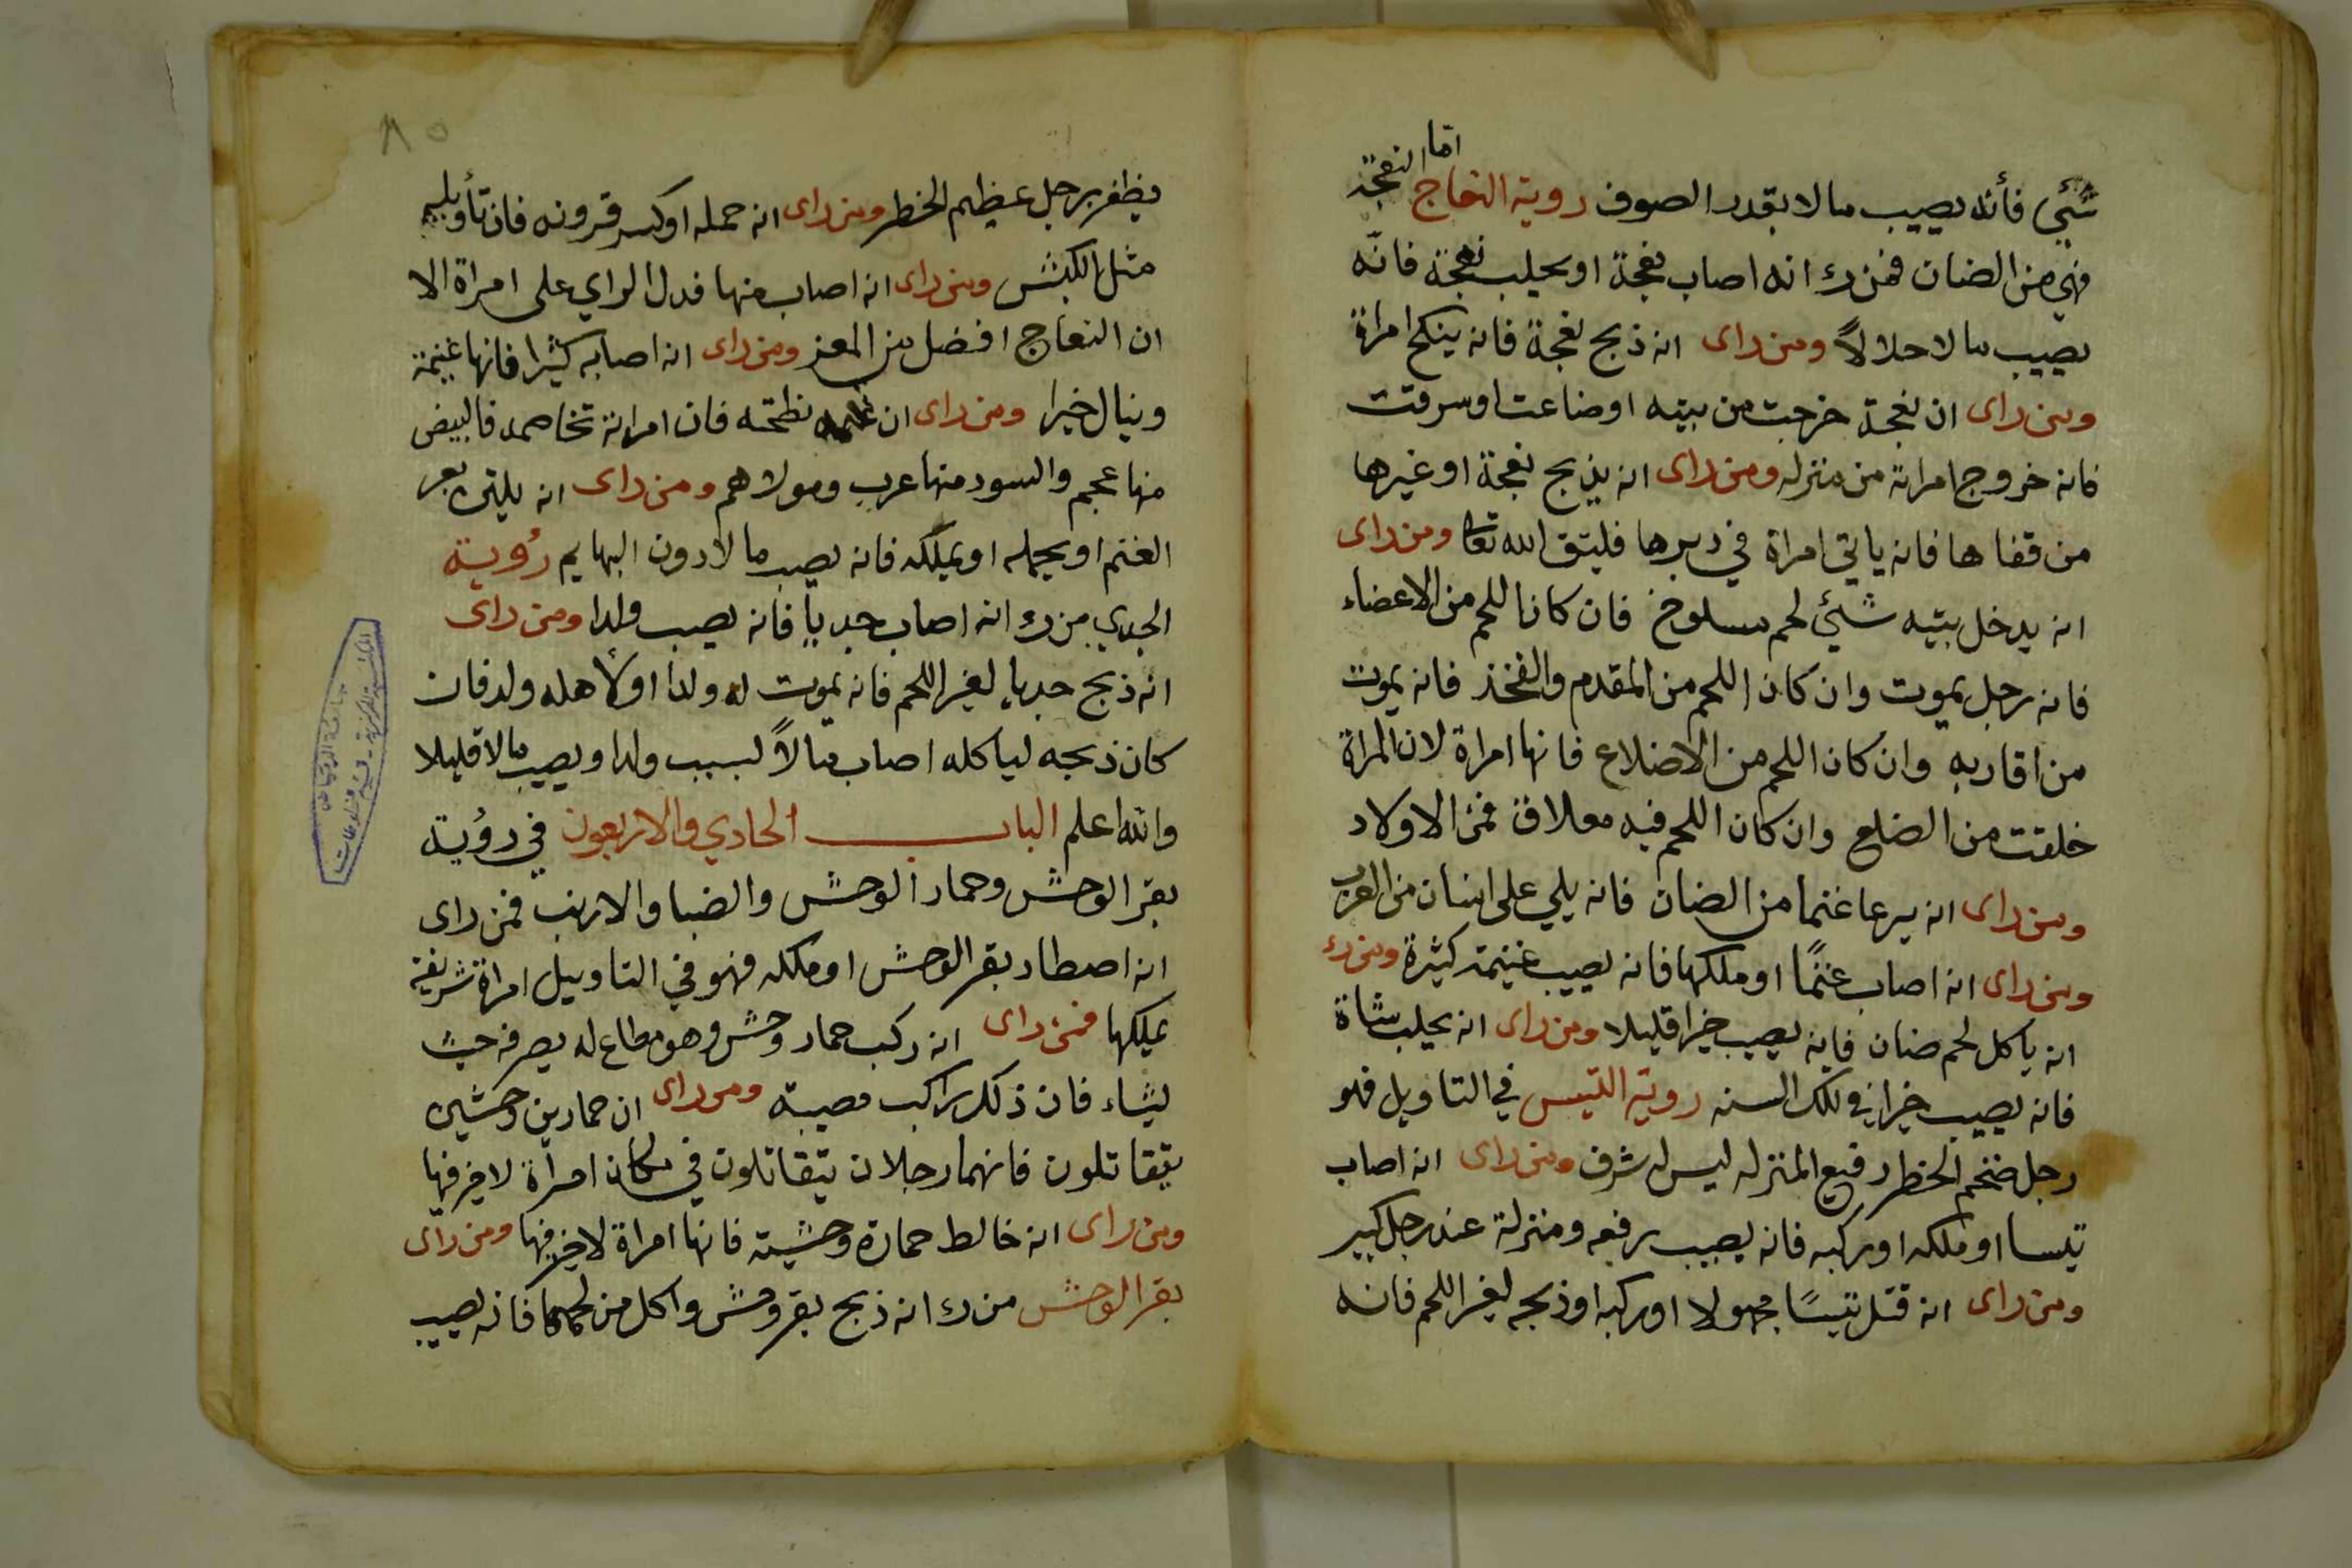 شئي فأنه يصيب مالا بقدر الصوف روية النعاج اما النعجة
فهي من الضان فمن رء انه اصاب نعجة او يحلب نعجة فانه
يصيب مالا حلالاً ومن راى انه ذبح نعجة فانه ينكح امراة
ومن راى ان نعجة خرجت من بيته او ضاعت او سرقت
فانه خروج امراته من منزله ومن راى انه يذبح نعجة او غيرها
من قفاها فانه ياتي امراة في دبرها فليتق الله تعا ومن راى
انه يدخل بيته شئي لحم مسلوخ فان كانا للحم من الاعضاء
فانه رجل يموت وان كان اللحم من المقدم والفخذ فانه يموت
من اقاربه وان كان اللحم من الاضلاع فانها امراة لان المراة
خلقت من الضلع وان كان اللحم فيه معلاق فمن الاولاد
ومن راى انه يرعا غنما من الضان فانه يلي على اناس من العرب
ومن راى انه اصاب غنمًا او ملكها فانه يصيب غنيمة كثيرة ومن رء
انه ياكل لحم ضان فانه يصيب خيرا قليلا ومن راى انه يحلب شاة
فانه يصيب خيرا في تلك السنه روية التيس في التاويل فهو
رجل ضخم الخطر رفيع المنزله ليس له شرف ومن راى انه اصاب
تيسا او ملكه او ركبه فانه يصيب رفعه ومنزلة عند رجل كبير
ومن راى انه قتل تيسًا مجهولا او ركبه او ذبحه لغير اللحم فانه
٨٥
يظفر برجل عظيم الخطر ومن راى انه حمله او كسر قرونه فان تأويله
مثل الكبش ومن راى انه اصاب منها فدل الراي على امراة الا
ان النعاج افضل من المعز ومن راى انه اصابه كثيرا فانها غنيمة
وينال خيرا ومن راى ان نطحته فان امراته تخاصمه فالبيض
منها عجم والسود منها عرب ومولاهم ومن راى انه يلتقي بعر
الغنم او يحمله او يملكه فانه يصيب مالا دون البهايم رؤية
الجدي من رء انه اصاب جديا فانه يصيب ولدا ومن راى
انه ذبح جديا لغير اللحم فانه يموت له ولدا او لأهله ولد فان
كان ذبحه لياكله اصاب مالاً لسبب ولدا ويصيب مالا قليلا
والله اعلم الباب الحادي والاربعون في رؤية
بقر الوحش وحمار الوحش والضبا والارنب فمن راى
انه اصطاد بقر الوحش او ملكه فهو في التاويل امراة شريفة
يملكها فمن راى انه ركب حمار وحش وهو مطاع له يصرفه حيث
يشاء فان ذلك راكب مصيبة ومن راى ان حمارين وحشين
يتقاتلون فانهما رجلان يتقاتلون في مكان امرأة لا خير فيها
ومن راى انه خالط حمارة وحشية فانها امراة لا خير فيها ومن راى
بقر الوحش من رء انه ذبح بقر وحش واكل من لحمها فانه يصيب